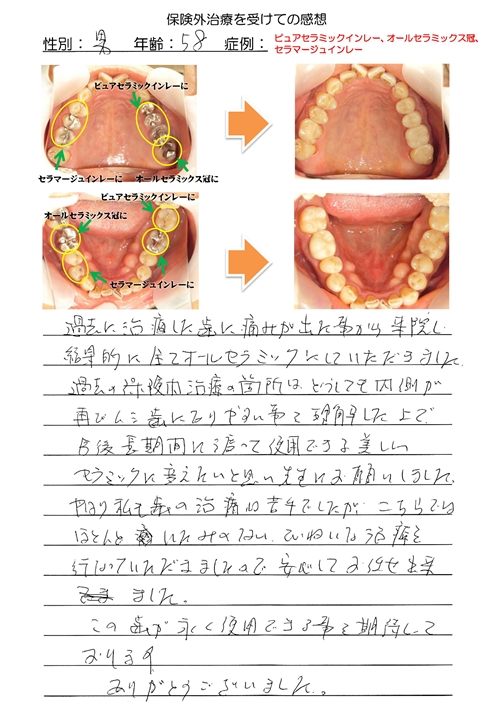 保険外治療を受けての感想
性別：男 年齢：58 症例：ピュアセラミックインレー、オールセラミックス冠、
セラマージュインレー
ピュアセラミックインレーに
セラマージュインレーに オールセラミックス冠に
ピュアセラミックインレーに
オールセラミックス冠に
セラマージュインレーに
過去に治療した歯に痛みが出た事から来院し
結果的に全てオールセラミックにしていただきました。
過去の保険内治療の箇所は、どうしても内側が
再びムシ歯になりやすい事を理解した上で
今後長期間に渡って使用できる美しい
セラミックに変えたいと思い先生にお願いしました。
やはり私も歯の治療は苦手でしたが、こちらでは
ほとんどいたみのない、ていねいな治療を
行なっていただきましたので安心してお任せ出来
ました。
この歯が永く使用できる事を期待して
おります
ありがとうございました。